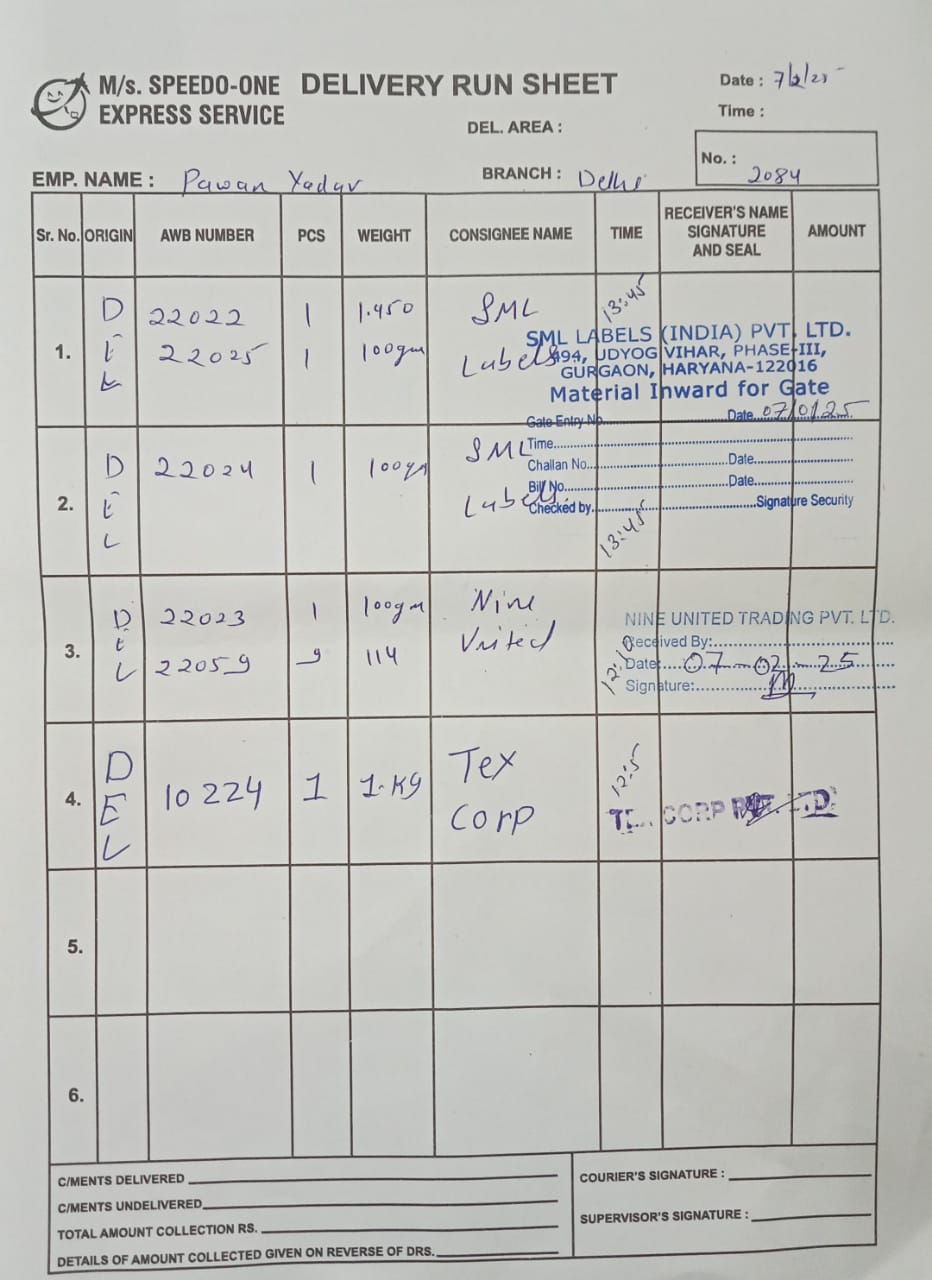 M/s. SPEEDO-ONE
EXPRESS SERVICE
DELIVERY RUN SHEET
Date : 7/2/25
Time :
DEL. AREA :
No. :
2084
EMP. NAME : Pawan Yadav
BRANCH : Delhi
Sr. No. ORIGIN AWB NUMBER PCS WEIGHT CONSIGNEE NAME TIME RECEIVER'S NAME SIGNATURE AND SEAL AMOUNT
1. DEL 22022 1 1.450 SML 13:45
22025 1 100gm Labels
SML LABELS (INDIA) PVT. LTD.
494, UDYOG VIHAR, PHASE-III,
GURGAON, HARYANA-122016
Material Inward for Gate
Gate Entry No. Date
2. DEL 22024 1 100gm SML
Labels 13:45
Time
Challan No. Date
Bill No. Date
Checked by. Signature Security
3. DEL 22023 1 100gm Nine
22059 9 114 United 12:10
NINE UNITED TRADING PVT. LTD.
Received By:
Date: 07-02-25
Signature:
4. DEL 10224 1 1.Kg Tex
Corp
CORP
5.
6.
C/MENTS DELIVERED
C/MENTS UNDELIVERED
TOTAL AMOUNT COLLECTION RS.
DETAILS OF AMOUNT COLLECTED GIVEN ON REVERSE OF DRS.
COURIER'S SIGNATURE :
SUPERVISOR'S SIGNATURE :